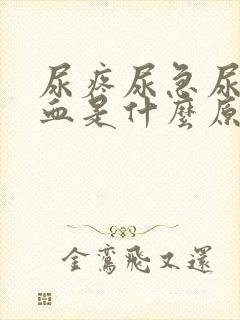 尿疼尿急尿
血是什麼原
金鸞飛又還